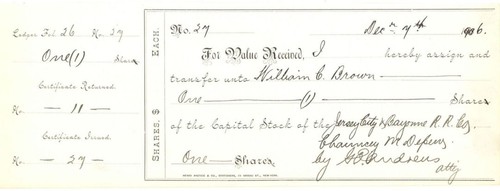 Ledger Feb 26 No. 27
One (1) Share
Certificate Returned
No. — 11 —
Certificate Issued
No. — 27 —
SHARES, $ EACH.
No. 27 Dec 7th 1906.
For Value Received, I hereby assign and
transfer unto William C. Brown
One (1) Share
of the Capital Stock of the Jersey City & Bayonne R. R. Co.
Chauncey M Depew
One Shares. by
atty